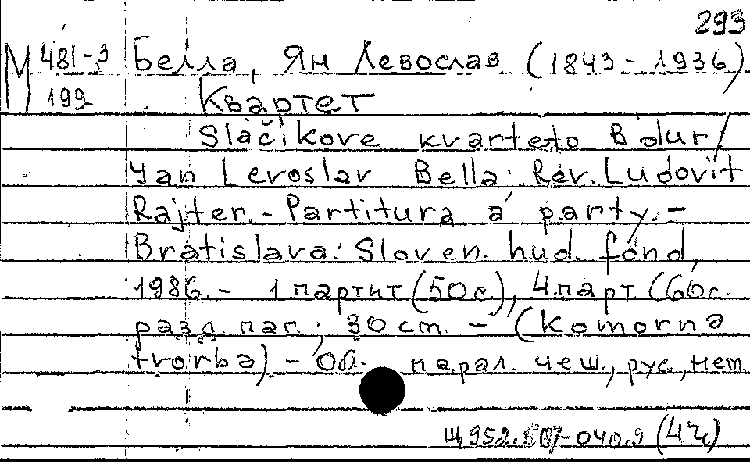 293
М 481-3 Белла, Ян Левослав (1843-1936)
199 Квартет
Sláčikove kvarteto B dur/
Yan Levoslav Bella: Rev. Ludovit
Rajter. - Partitura a party. -
Bratislava: Sloven. hud. fond,
1986. - 1 партит (50с), 4 парт (60с.
разд. паг.; 30 cm. - (Komorna
tvorba) - Об. парал. чеш., рус., нем
Щ952.507-040.9 (4Ч)